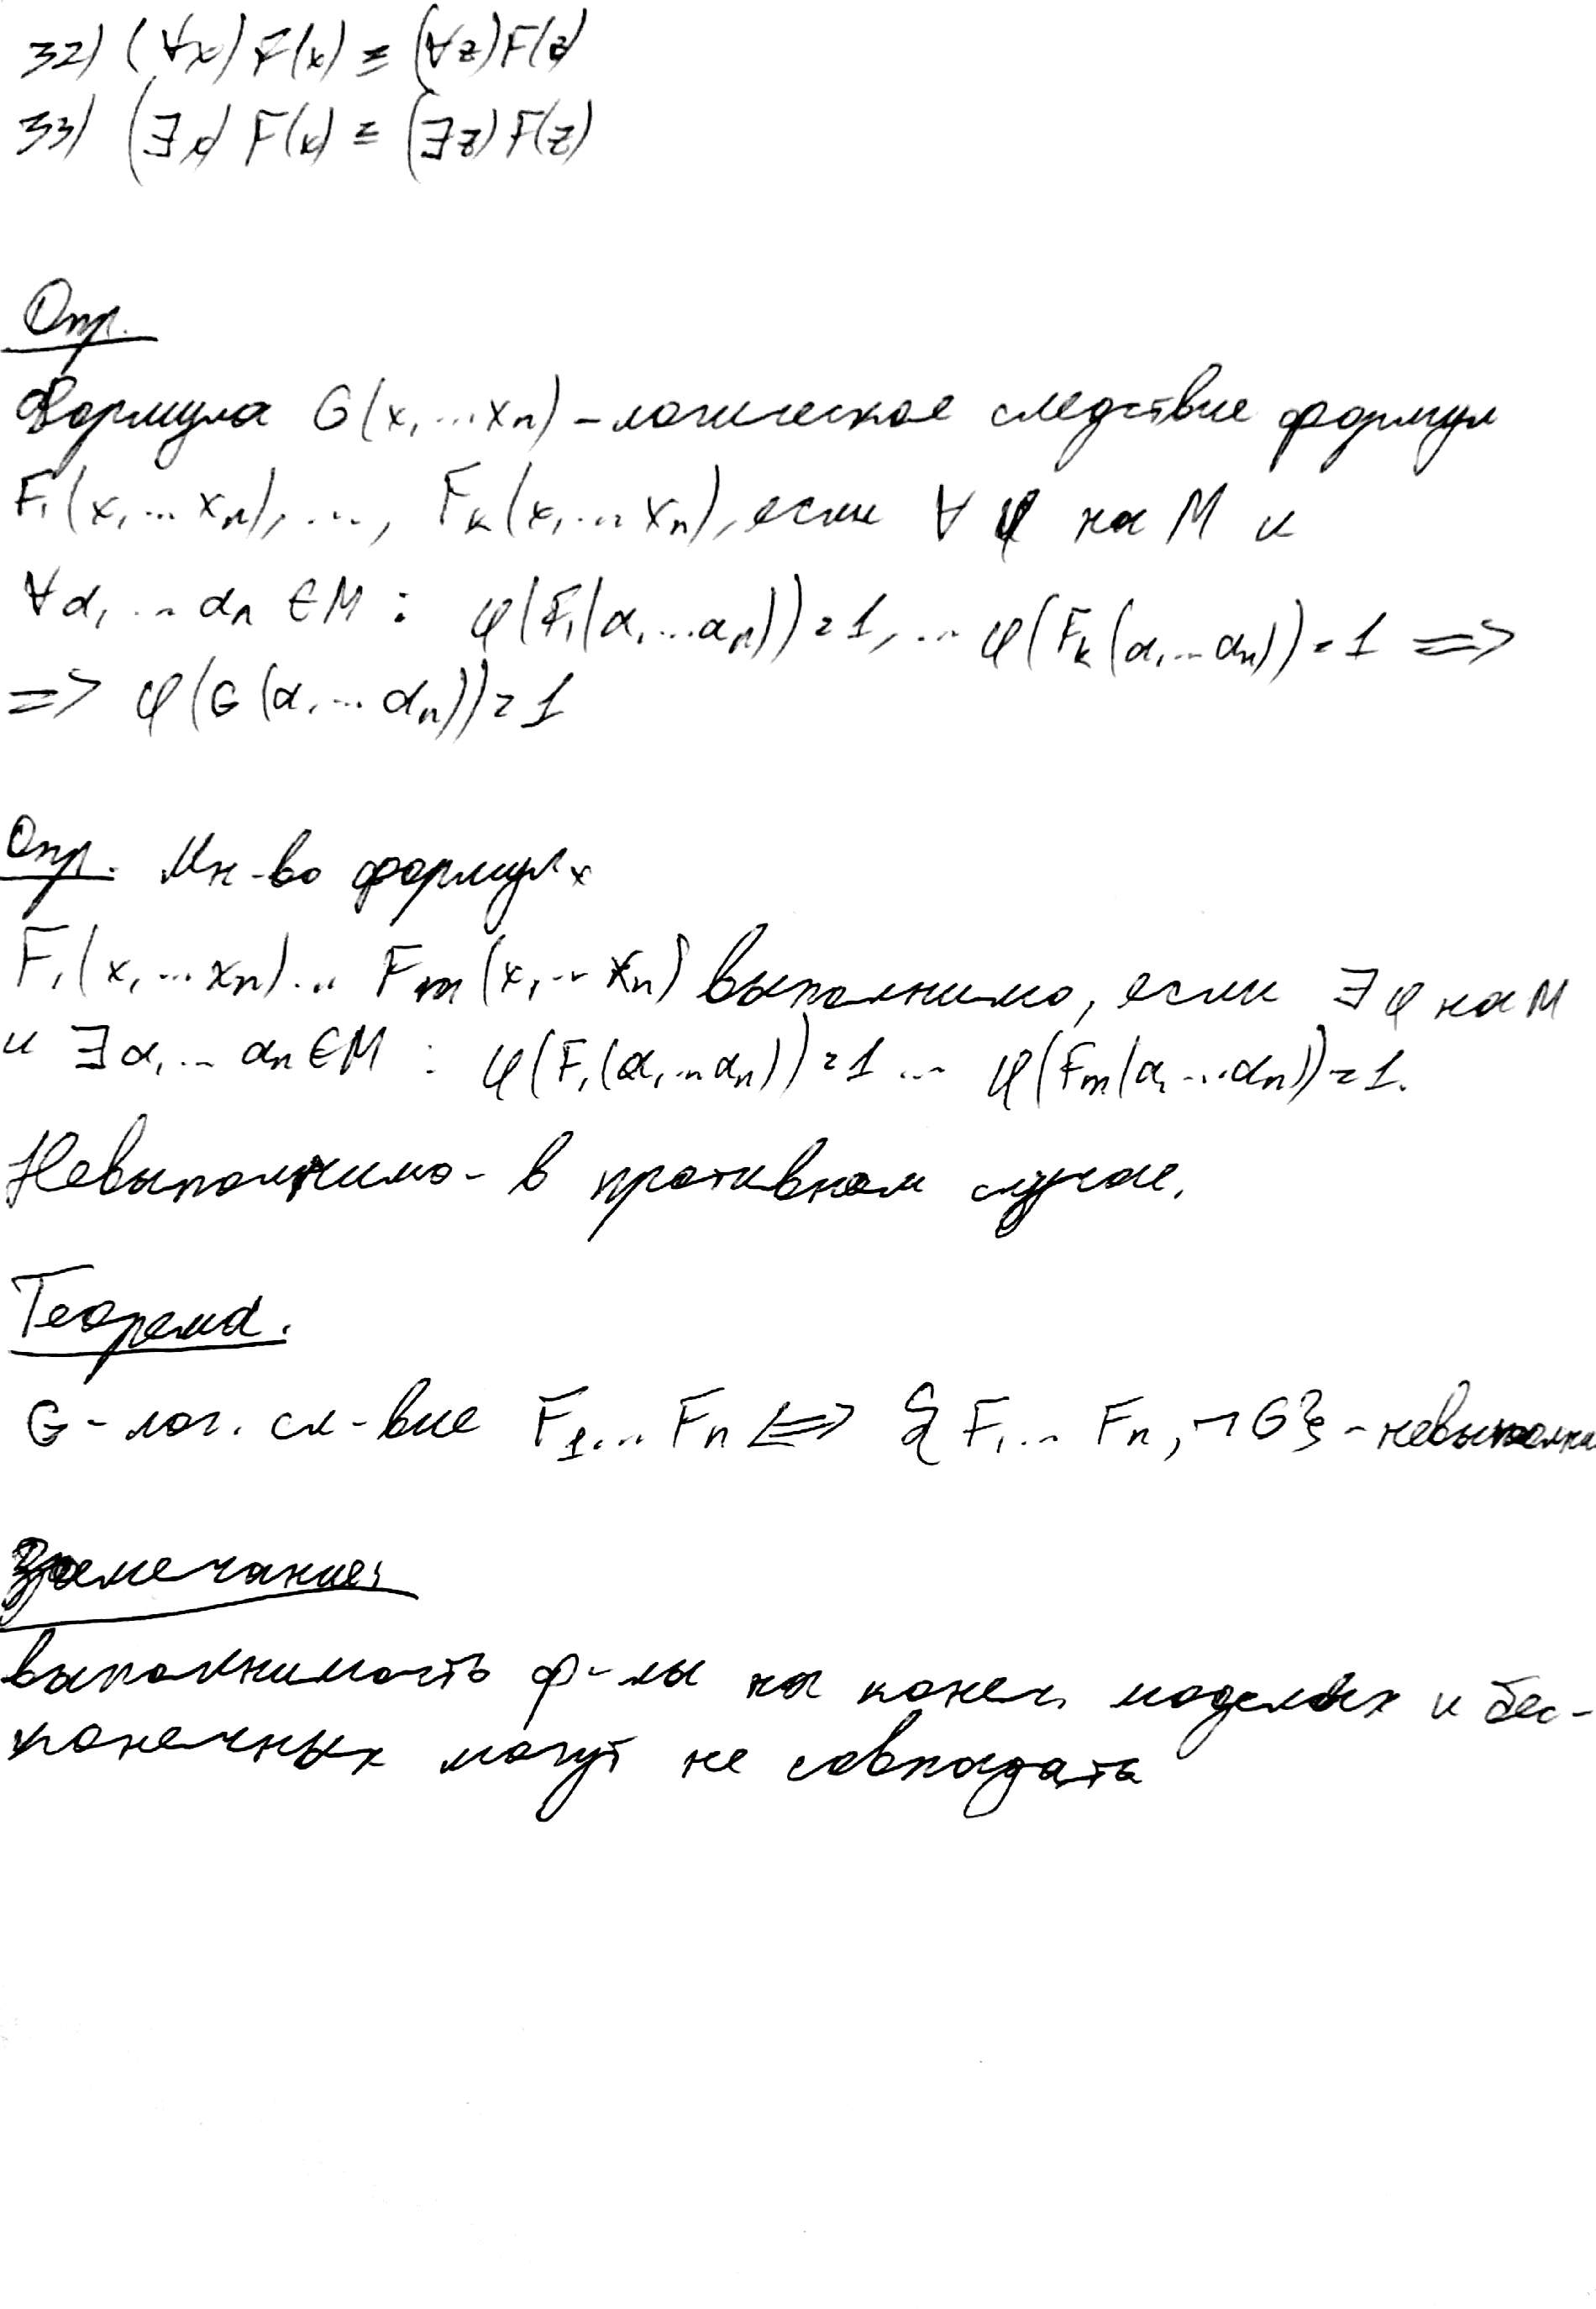 32) (∀x) F(x) ≡ (∀z) F(z)
33) (∃x) F(x) ≡ (∃z) F(z)
Опр.
Формула G(x₁...xₙ) - логическое следствие формул
F₁(x₁...xₙ), ..., Fₖ(x₁...xₙ), если ∀ φ на M и
∀α₁...αₙ ∈ M : φ(F₁(α₁...αₙ)) = 1, ... φ(Fₖ(α₁...αₙ)) = 1 =>
=> φ(G(α₁...αₙ)) = 1
Опр. Мн-во формул
F₁(x₁...xₙ)... Fₘ(x₁...xₙ) выполнимо, если ∃ φ на M
и ∃α₁...αₙ ∈ M : φ(F₁(α₁...αₙ)) = 1 ... φ(Fₘ(α₁...αₙ)) = 1.
Невыполнимо - в противном случае.
Теорема.
G - лог. сл-вие F₁...Fₙ <=> {F₁... Fₙ, ¬G} - невыполни
Замечание:
выполнимость ф-лы на конеч. моделях и бес-
конечных могут не совпадать